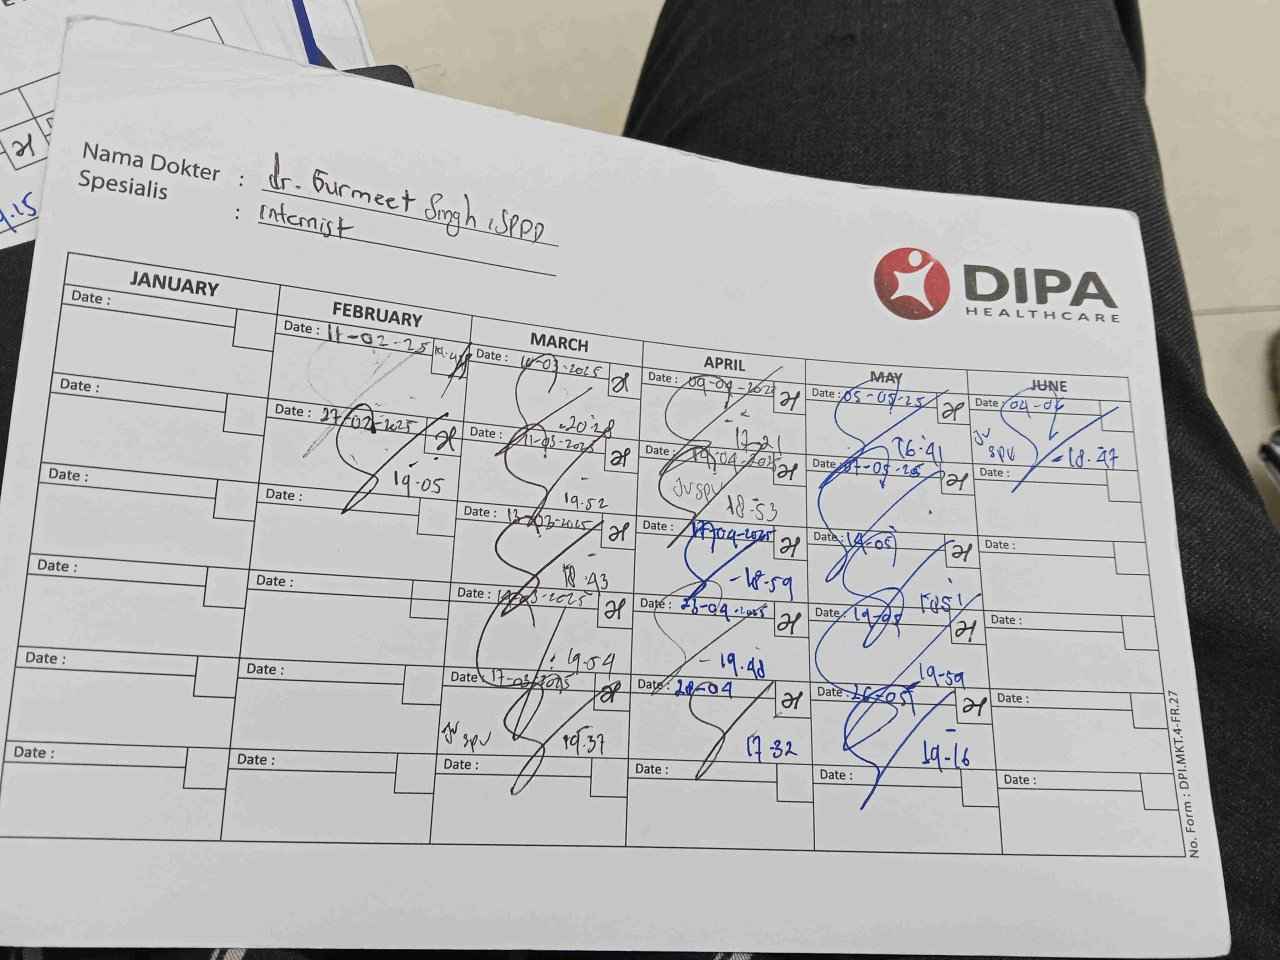 Nama Dokter : dr. Gurmeet Singh, SPPD
Spesialis : Internist
DIPA
HEALTHCARE
JANUARY
Date :
Date :
Date :
Date :
Date :
Date :
FEBRUARY
Date : 11-02-25
Date : 27-02-2025
19.05
Date :
Date :
Date :
Date :
MARCH
Date : 10-03-2025
20.28
Date : 11-03-2025
19.52
Date : 13-03-2025
18.43
Date :
19.04
Date : 17-03-2025
Jv spv
19.37
Date :
APRIL
Date : 09-04-2025
17.21
Date : 14-04-2025
Jv spv
18-53
Date : 17-04-2025
-18-59
Date : 23-04-2025
- 19.48
Date : 28-04
17-32
Date :
MAY
Date : 05-05-25
16.41
Date : 07-05-25
Date : 14-05
Date : 19-05
19-59
Date : 26-05
19-16
Date :
JUNE
Date : 04-06
Jv spv
-18.47
Date :
Date :
Date :
Date :
Date :
No. Form : DPI.MKT.4-FR.27